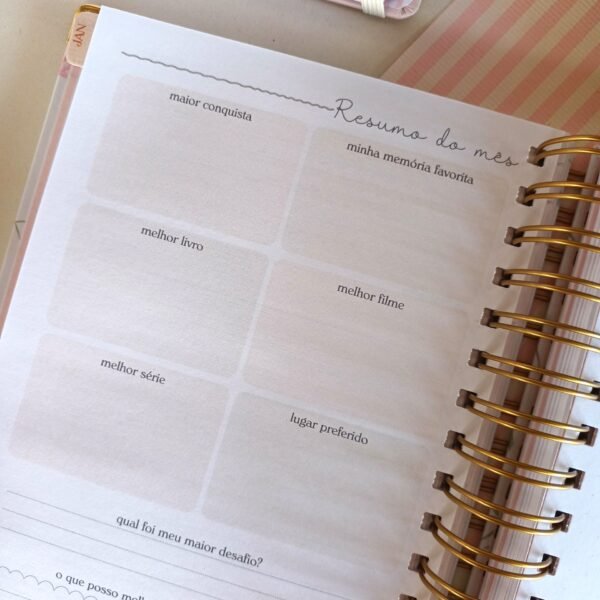 JAN
Resumo do mês
maior conquista
minha memória favorita
melhor livro
melhor filme
melhor série
lugar preferido
qual foi meu maior desafio?
o que posso